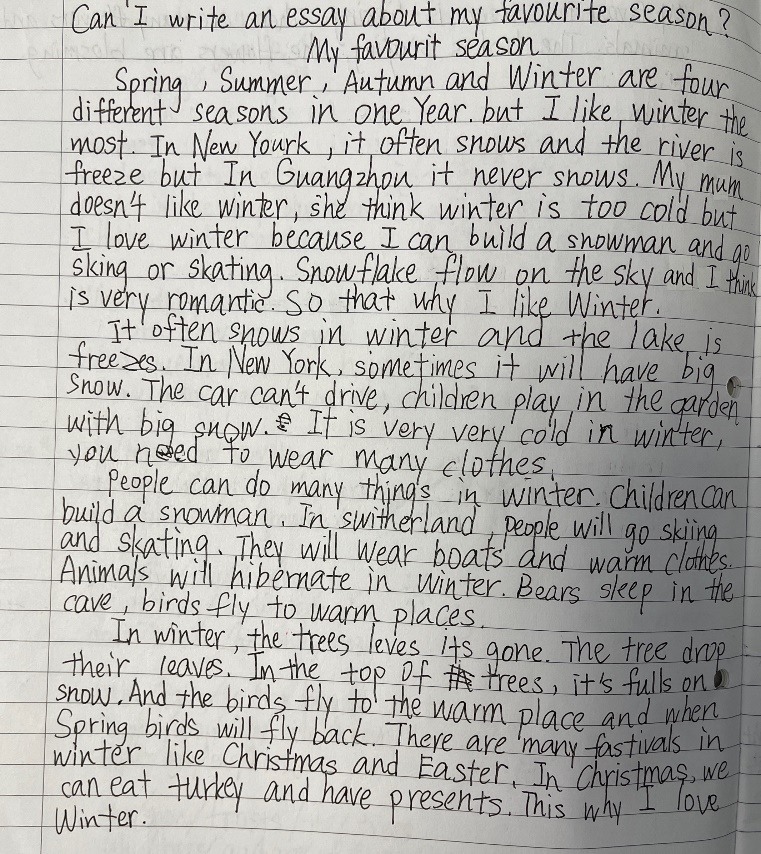 Can I write an essay about my favourite season?
My favourit season
Spring, Summer, Autumn and Winter are four
different seasons in one Year. but I like winter the
most. In New Yourk, it often snows and the river is
freeze but In Guangzhou it never snows. My mum
doesn't like winter, she think winter is too cold but
I love winter because I can build a snowman and go
sking or skating. Snowflake flow on the sky and I think
is very romantic. So that why I like Winter.
It often snows in winter and the lake is
freezes. In New York, sometimes it will have big
snow. The car can't drive, children play in the garden
with big snow. It is very very cold in winter,
you need to wear many clothes.
People can do many things in winter. Children can
build a snowman. In switherland, people will go skiing
and skating. They will wear boats and warm clothes.
Animals will hibernate in winter. Bears sleep in the
cave, birds fly to warm places.
In winter, the trees leves its gone. The tree drop
their leaves. In the top of trees, it's fulls on
snow. And the birds fly to the warm place and when
Spring birds will fly back. There are many fastivals in
winter like Christmas and Easter. In Christmas, we
can eat turkey and have presents. This why I love
Winter.